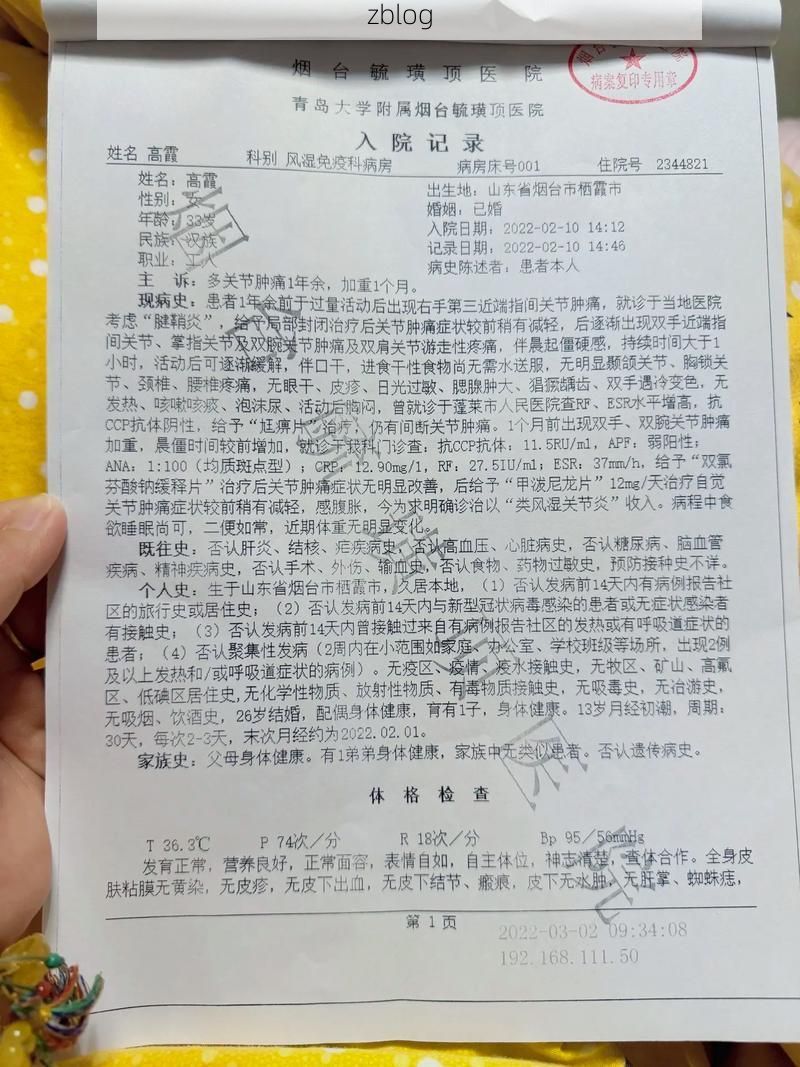 zblog
烟台毓璜顶医院
病案复印专用章
青岛大学附属烟台毓璜顶医院
入院记录
姓名 高霞 科别 风湿免疫科病房 病房床号001 住院号 2344821
姓名：高霞
性别：女
年龄：33岁
民族：汉族
职业：工人
出生地：山东省烟台市栖霞市
婚姻：已婚
入院日期：2022-02-10 14:12
记录日期：2022-02-10 14:46
病史陈述者：患者本人
主 诉：多关节肿痛1年余，加重1个月。
现病史：患者1年余前于过量活动后出现右手第三近端指间关节肿痛，就诊于当地医院
考虑“腱鞘炎”，给予局部封闭治疗后关节肿痛症状较前稍有减轻，后逐渐出现双手近端指
间关节、掌指关节及双腕关节肿痛及双肩关节游走性疼痛，伴晨起僵硬感，持续时间大于1
小时，活动后可逐渐缓解，伴口干，进食干性食物尚无需水送服，无明显颞颌关节、胸锁关
节、颈椎、腰椎疼痛，无眼干、皮疹、日光过敏、腮腺肿大、猖獗龋齿、双手遇冷变色，无
发热、咳嗽咳痰、泡沫尿、活动后胸闷，曾就诊于蓬莱市人民医院查RF、ESR水平增高，抗
CCP抗体阴性，给予“尪痹片”治疗，仍有间断关节肿痛。1个月前出现双手、双腕关节肿痛
加重，晨僵时间较前增加，就诊于我科门诊查：抗CCP抗体：11.5RU/ml，APF：弱阳性；
ANA：1:100（均质斑点型）；CRP：12.90mg/l，RF：27.5IU/ml；ESR：37mm/h，给予“双氯
芬酸钠缓释片”治疗后关节肿痛症状无明显改善，后给予“甲泼尼龙片”12mg/天治疗自觉
关节肿痛症状较前稍有减轻，感腹胀，今为求明确诊治以“类风湿关节炎”收入。病程中食
欲睡眠尚可，二便如常，近期体重无明显变化。
既往史：否认肝炎、结核、疟疾病史，否认高血压、心脏病史，否认糖尿病、脑血管
疾病、精神疾病史，否认手术、外伤、输血史，否认食物、药物过敏史，预防接种史不详。
个人史：生于山东省烟台市栖霞市，久居本地，（1）否认发病前14天内有病例报告社
区的旅行史或居住史；（2）否认发病前14天内与新型冠状病毒感染的患者或无症状感染者
有接触史；（3）否认发病前14天内曾接触过来自有病例报告社区的发热或有呼吸道症状的
患者；（4）否认聚集性发病（2周内在小范围如家庭、办公室、学校班级等场所，出现2例
及以上发热和/或呼吸道症状的病例）。无疫区、疫情、疫水接触史，无牧区、矿山、高氟
区、低碘区居住史，无化学性物质、放射性物质、有毒物质接触史，无吸毒史，无冶游史，
无吸烟、饮酒史，26岁结婚，配偶身体健康，育有1子，身体健康。13岁月经初潮，周期：
30天，每次2-3天，末次月经约为2022.02.01。
家族史：父母身体健康。有1弟弟身体健康，家族中无类似患者。否认遗传病史。
体格检查
T 36.3℃ P 74次/分 R 18次/分 Bp 95/56mmHg
发育正常，营养良好，正常面容，表情自如，自主体位，神志清楚，查体合作。全身皮
肤粘膜无黄染，无皮疹，无皮下出血，无皮下结节、瘢痕，皮下无水肿，无肝掌、蜘蛛痣，
第 1 页
2022-03-02 09:34:08
192.168.111.50